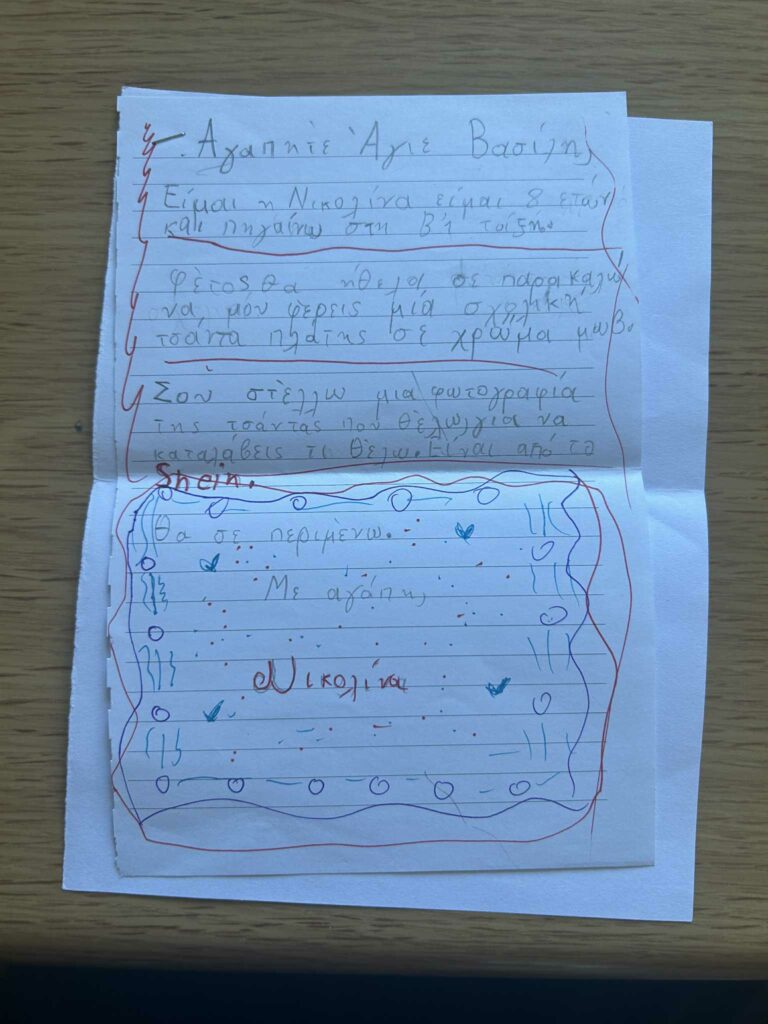 Αγαπητέ Άγιε Βασίλη,
Είμαι η Νικολίνα είμαι 8 ετών
και πηγαίνω στη Β'1 τάξη.
Φέτος θα ήθελα σε παρακαλώ
να μου φέρεις μιά σχολική
τσάντα πλάτης σε χρώμα μωβ.
Σου στέλλω μια φωτογραφία
της τσάντας που θέλω για να
καταλάβεις τι θέλω. Είναι από το
Shein.
Θα σε περιμένω.
Με αγάπη,
Νικολίνα